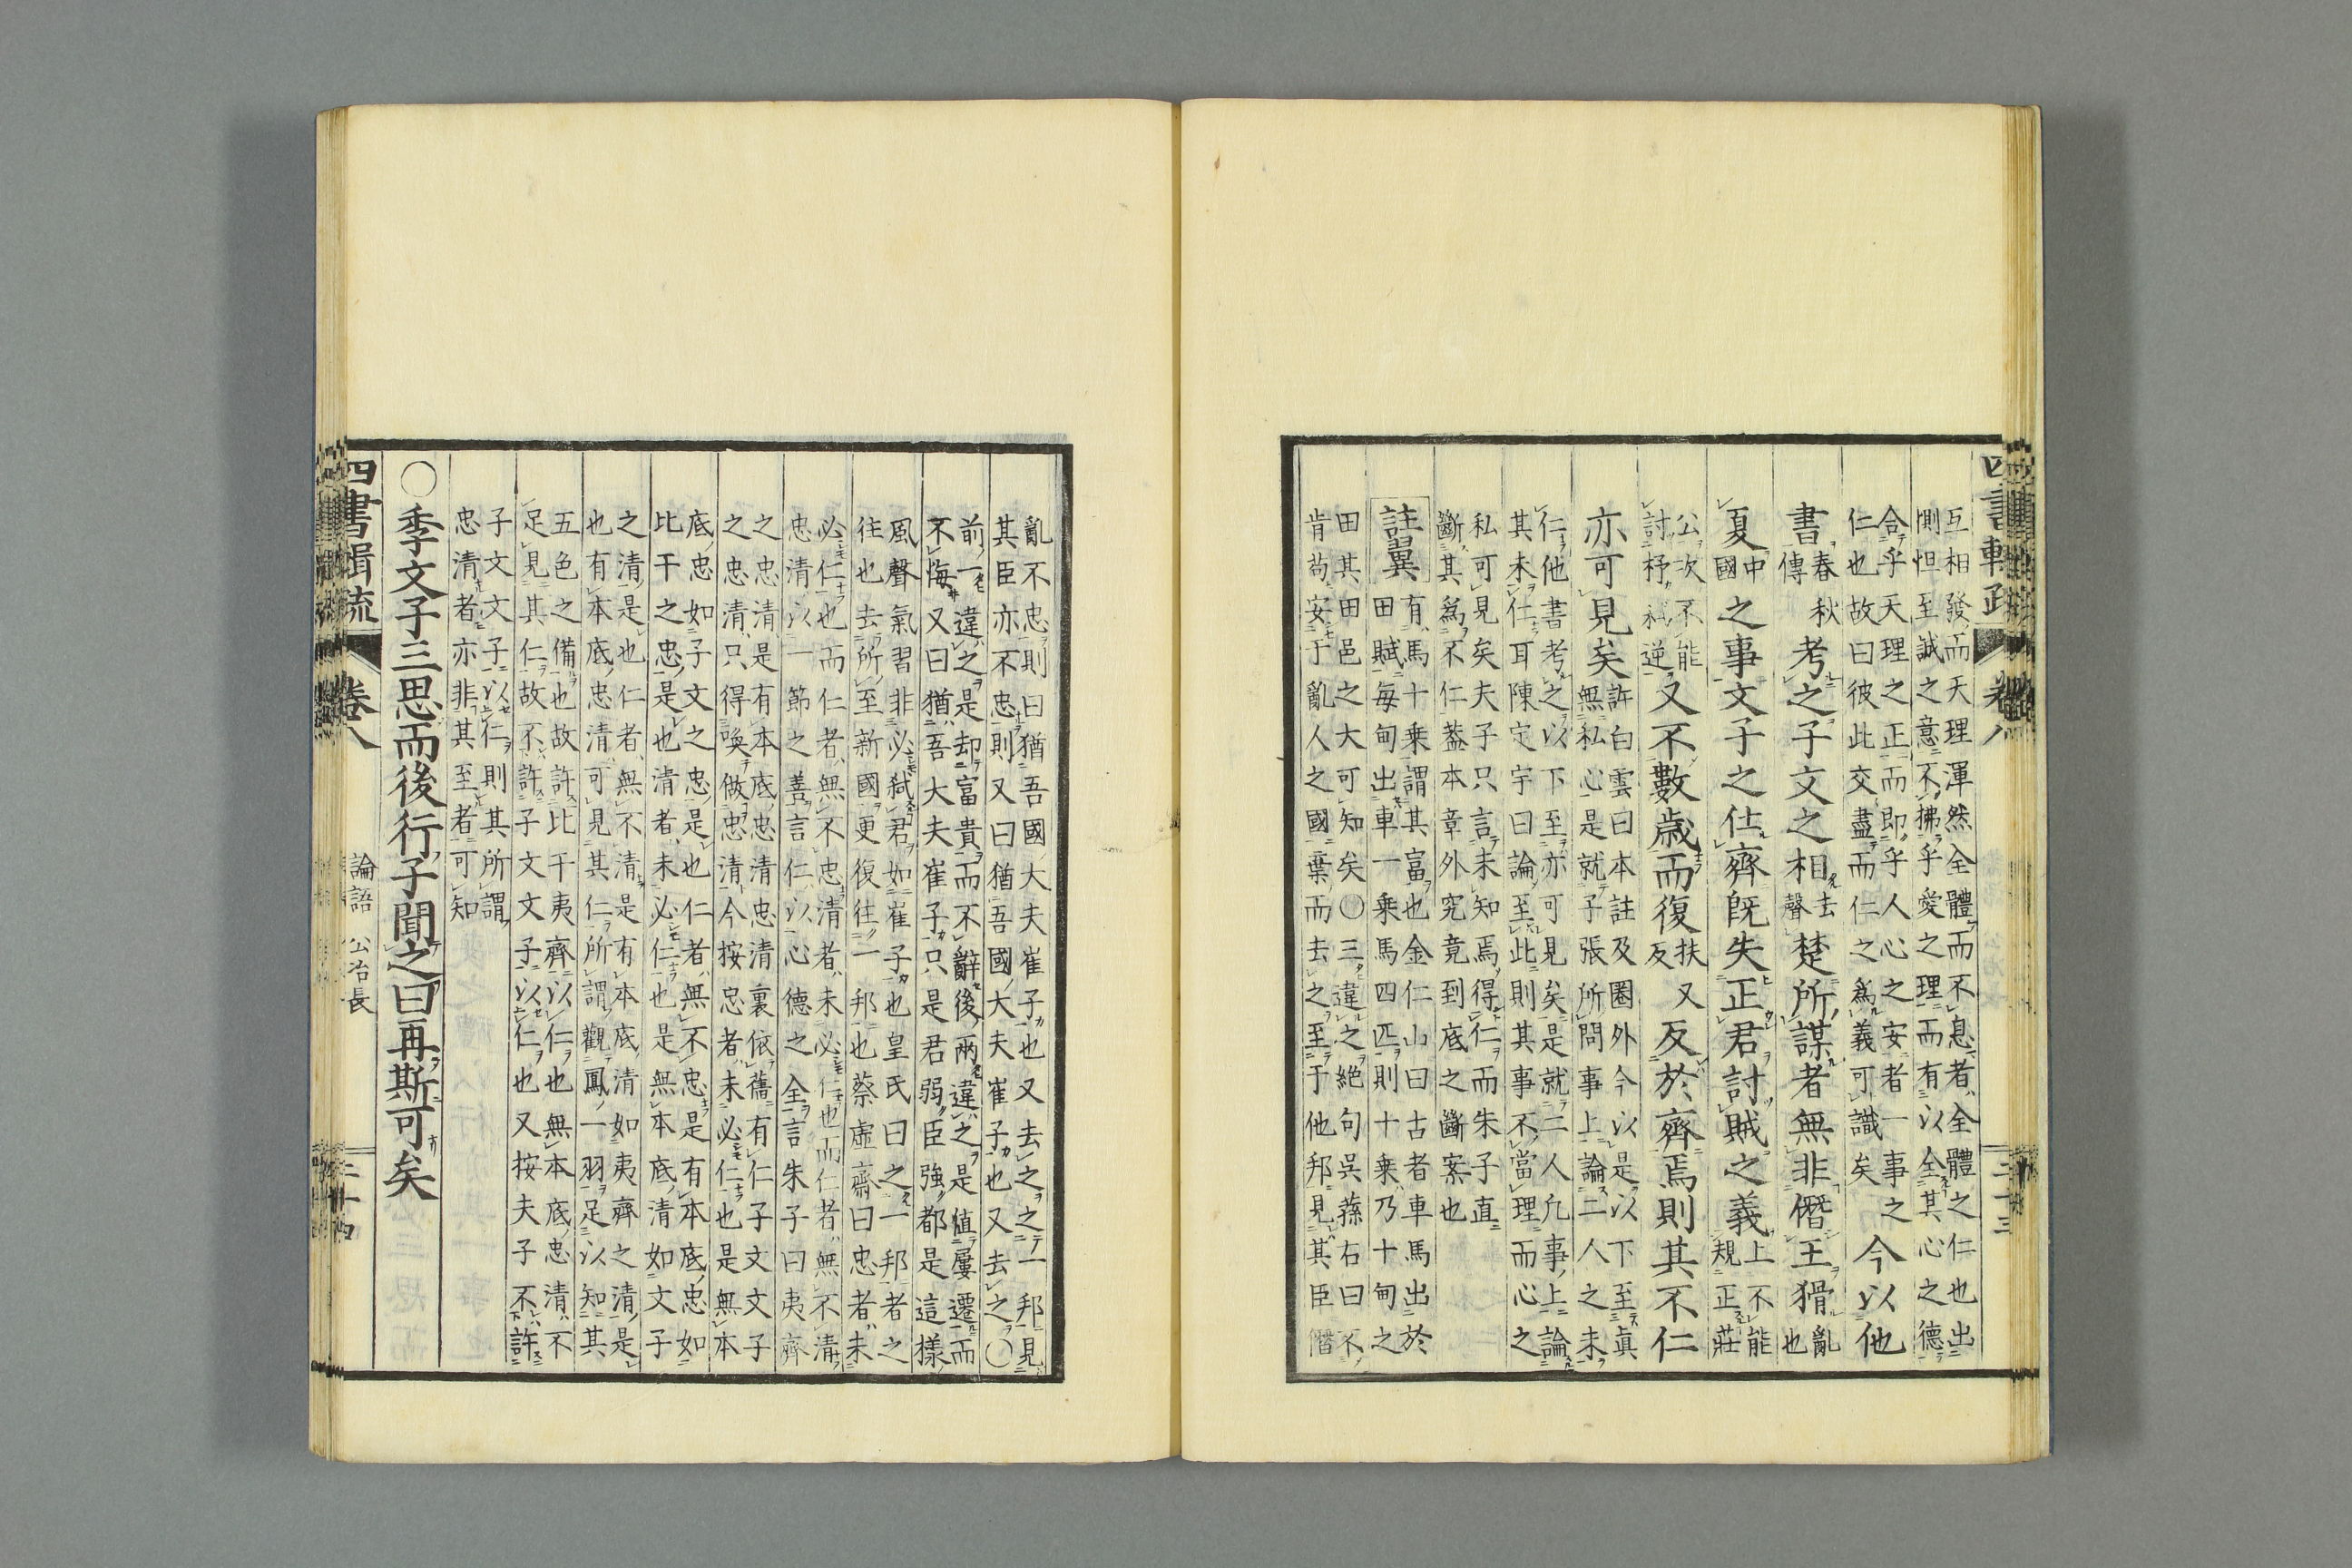 互相發而天理渾然全體而不息者全體之仁也出
惻怛至誠之意不拂乎愛之理而有以全其心之德
合乎天理之正而即乎人心之安者一事之
仁也故曰彼此交盡而仁之爲義可識矣
今以他
書春秋傳考之子文之相去聲楚所謀者無非僭王猾亂也
夏中國之事文子之仕齊既失正君討賊之義上不能規正莊
公次不能討杼弑逆又不數歲而復扶又反反於齊焉則其不仁
亦可見矣許白雲曰本註及圈外今以是以下至眞
無私心是就子張所問事上論二人之未
仁他書考之以下至亦可見矣是就二人凡事上論
其未仁耳陳定宇曰論至此則其事不當理而心之
私可見矣夫子只言未知焉得仁而朱子直
斷其爲不仁蓋本章外究竟到底之斷案也
註翼有馬十乘謂其富也金仁山曰古者車馬出於
田賦每甸出車一乘馬四匹則十乘乃十甸之
田其田邑之大可知矣○三違之絶句吳蓀右曰不
肯苟安于亂人之國棄而去之至于他邦見其臣僭
四書輯疏
卷八
二十三
亂不忠則曰猶吾國大夫崔子也又去之之一邦見
其臣亦不忠則又曰猶吾國大夫崔子也又去之○
前一違之是却富貴而不辭後兩違之是値屢遷而
不悔又曰猶吾大夫崔子只是君弱臣強都是這樣
風聲氣習非必弑君如崔子也皇氏曰之一邦者之
往也去所至新國更復往一邦也蔡虛齋曰忠者未
必仁也而仁者無不忠清者未必仁也而仁者無不清
忠清以一節之善言仁以心德之全言朱子曰夷齊
之忠清是有本底忠清忠清裏依舊有仁子文文子
之忠清只得喚做忠清今按忠者未必仁也是無本
底忠如子文之忠是也仁者無不忠是有本底忠如
比干之忠是也清者未必仁也是無本底清如文子
之清是也仁者無不清是有本底清如夷齊之清是
也有本底忠清可見其仁所謂觀鳳一羽足以知其
五色之備也故許比干夷齊以仁也無本底忠清不
足見其仁故不許子文文子以仁也又按夫子不許
子文文子以仁則其所謂
忠清者亦非其至者可知
○季文子三思而後行子聞之曰再斯可矣
四書輯疏
卷八
論語 公冶長
二十四